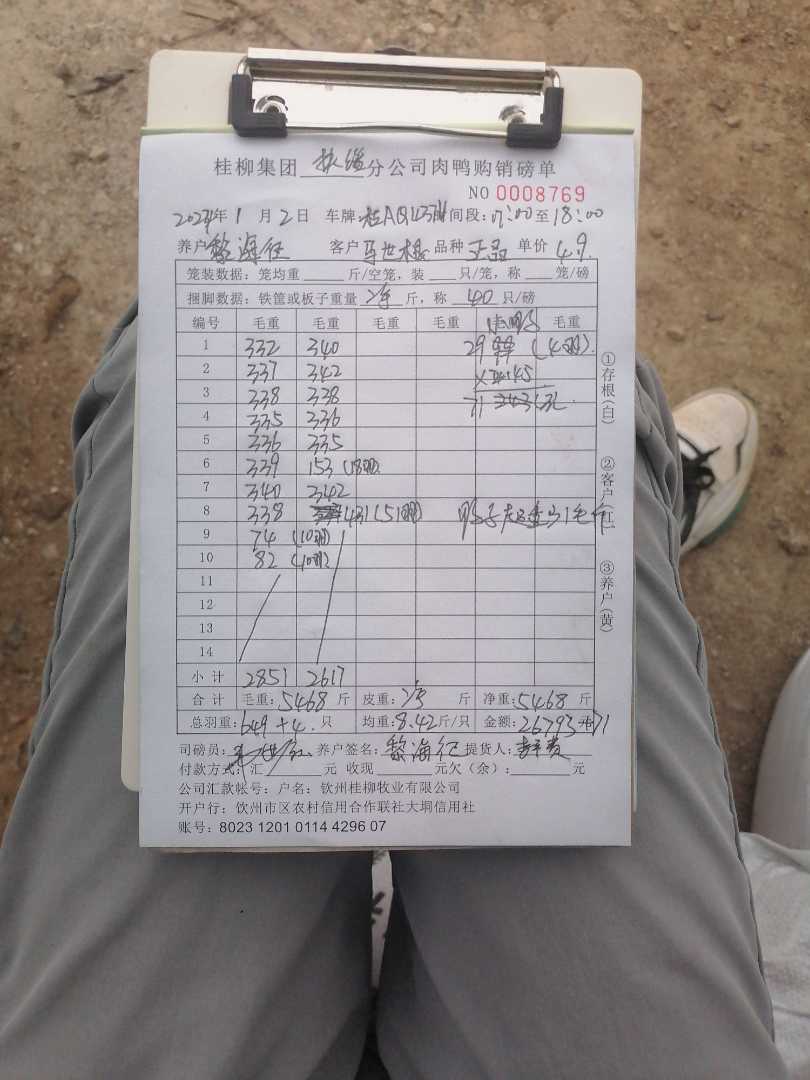 桂柳集团 分公司肉鸭购销磅单
NO 0008769
2024年1月2日 车牌: 桂AQ 时间段:17:00至18:00
养户 黎海 客户 马世 品种 正品 单价 4.9
笼装数据:笼均重 斤/空笼,装 只/笼,称 笼/磅
捆脚数据:铁筐或板子重量 净 斤,称 40 只/磅
编号 毛重 毛重 毛重 毛重 毛重
1 332 340 29 (4羽)
2 337 342
3 338 338 71
4 335 336
5 336 335
6 339 153 (18羽)
7 340 342
8 338 431 (51羽) 鸭子
9 74 (10羽)
10 82 (10羽)
11
12
13
14
小计 2851 2617
合计 毛重:5468斤 皮重:净 斤 净重:5468斤
总羽重:649+4只 均重:8.42斤/只 金额:26793 71
司磅员: 养户签名:黎海 提货人:
付款方式:汇 元 收现 元欠(余): 元
公司汇款帐号:户名:钦州桂柳牧业有限公司
开户行:钦州市区农村信用合作联社大垌信用社
账号:8023 1201 0114 4296 07
①存根(白)
②客户(红)
③养户(黄)